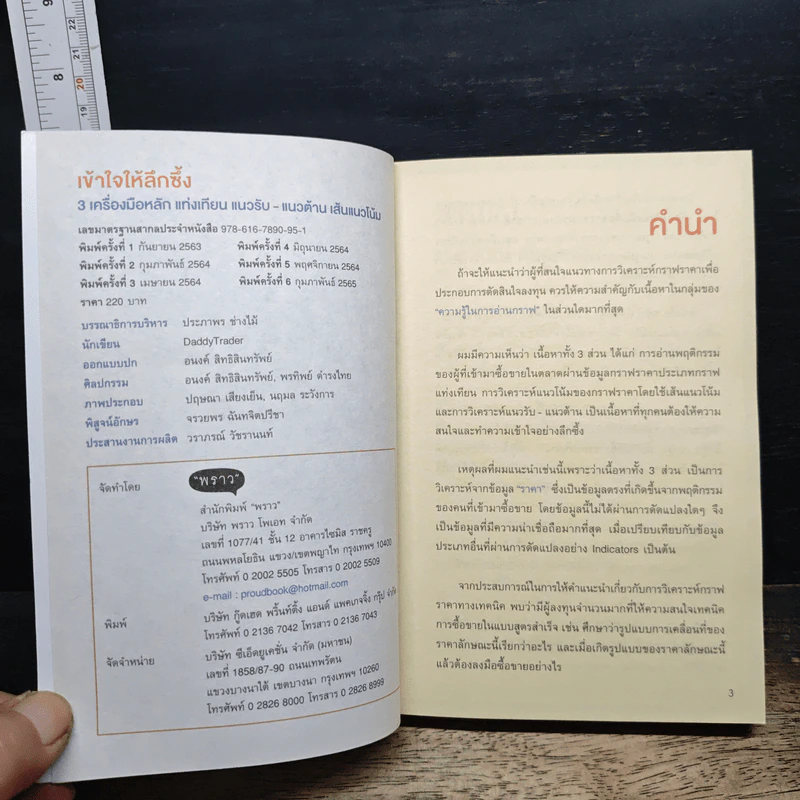 9
8
22
21
20
19
เข้าใจให้ลึกซึ้ง
3 เครื่องมือหลัก แท่งเทียน แนวรับ - แนวต้าน เส้นแนวโน้ม
เลขมาตรฐานสากลประจำหนังสือ 978-616-7890-95-1
พิมพ์ครั้งที่ 1 กันยายน 2563 พิมพ์ครั้งที่ 4 มิถุนายน 2564
พิมพ์ครั้งที่ 2 กุมภาพันธ์ 2564 พิมพ์ครั้งที่ 5 พฤศจิกายน 2564
พิมพ์ครั้งที่ 3 เมษายน 2564 พิมพ์ครั้งที่ 6 กุมภาพันธ์ 2565
ราคา 220 บาท
บรรณาธิการบริหาร ประภาพร ช่างไม้
นักเขียน DaddyTrader
ออกแบบปก อนงค์ สิทธิสินทรัพย์
ศิลปกรรม อนงค์ สิทธิสินทรัพย์, พรทิพย์ ดำรงไทย
ภาพประกอบ ปฤษณา เสียงเย็น, นฤมล ระวังการ
พิสูจน์อักษร จรวยพร ฉันทจิตปรีชา
ประสานงานการผลิต วราภรณ์ วัชรานนท์
จัดทำโดย "พราว"
สำนักพิมพ์ "พราว"
บริษัท พราว โพเอท จำกัด
เลขที่ 1077/41 ชั้น 12 อาคารไซมิส ราชครู
ถนนพหลโยธิน แขวง/เขตพญาไท กรุงเทพฯ 10400
โทรศัพท์ 0 2002 5505 โทรสาร 0 2002 5509
e-mail : proudbook@hotmail.com
พิมพ์ บริษัท กู๊ดเฮด พริ้นท์ติ้ง แอนด์ แพคเกจจิ้ง กรุ๊ป จำกัด
โทรศัพท์ 0 2136 7042 โทรสาร 0 2136 7043
จัดจำหน่าย บริษัท ซีเอ็ดยูเคชั่น จำกัด (มหาชน)
เลขที่ 1858/87-90 ถนนเทพรัตน
แขวงบางนาใต้ เขตบางนา กรุงเทพฯ 10260
โทรศัพท์ 0 2826 8000 โทรสาร 0 2826 8999
คำนำ
ถ้าจะให้แนะนำว่าผู้ที่สนใจแนวทางการวิเคราะห์กราฟราคาเพื่อ
ประกอบการตัดสินใจลงทุน ควรให้ความสำคัญกับเนื้อหาในกลุ่มของ
"ความรู้ในการอ่านกราฟ" ในส่วนใดมากที่สุด
ผมมีความเห็นว่า เนื้อหาทั้ง 3 ส่วน ได้แก่ การอ่านพฤติกรรม
ของผู้ที่เข้ามาซื้อขายในตลาดผ่านข้อมูลกราฟราคาประเภทกราฟ
แท่งเทียน การวิเคราะห์แนวโน้มของกราฟราคาโดยใช้เส้นแนวโน้ม
และการวิเคราะห์แนวรับ - แนวต้าน เป็นเนื้อหาที่ทุกคนต้องให้ความ
สนใจและทำความเข้าใจอย่างลึกซึ้ง
เหตุผลที่ผมแนะนำเช่นนี้เพราะว่าเนื้อหาทั้ง 3 ส่วน เป็นการ
วิเคราะห์จากข้อมูล "ราคา" ซึ่งเป็นข้อมูลตรงที่เกิดขึ้นจากพฤติกรรม
ของคนที่เข้ามาซื้อขาย โดยข้อมูลนี้ไม่ได้ผ่านการดัดแปลงใดๆ จึง
เป็นข้อมูลที่มีความน่าเชื่อถือมากที่สุด เมื่อเปรียบเทียบกับข้อมูล
ประเภทอื่นที่ผ่านการดัดแปลงอย่าง Indicators เป็นต้น
จากประสบการณ์ในการให้คำแนะนำเกี่ยวกับการวิเคราะห์กราฟ
ราคาทางเทคนิค พบว่ามีผู้ลงทุนจำนวนมากที่ให้ความสนใจเทคนิค
การซื้อขายในแบบสูตรสำเร็จ เช่น ศึกษาว่ารูปแบบการเคลื่อนที่ของ
ราคาลักษณะนี้เรียกว่าอะไร และเมื่อเกิดรูปแบบของราคาลักษณะนี้
แล้วต้องลงมือซื้อขายอย่างไร
3